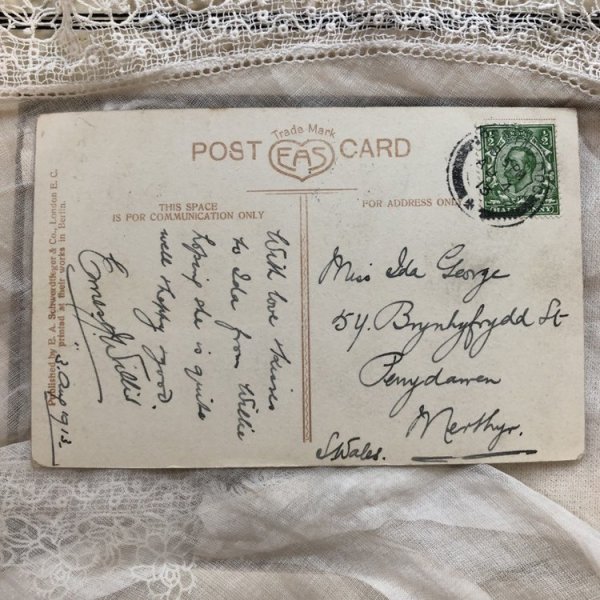 Trade Mark
POST EAS CARD
THIS SPACE
IS FOR COMMUNICATION ONLY
FOR ADDRESS ONLY
Published by E. A. Schwerdtfeger & Co., London E. C.
printed at their works in Berlin.
With love Kisses
to Ida from Willie
hoping she is quite
well Happy & good.
Willis
3. Aug 1913.
Miss Ida George
54. Brynhyfrydd St
Penydarren
Merthyr.
S Wales.